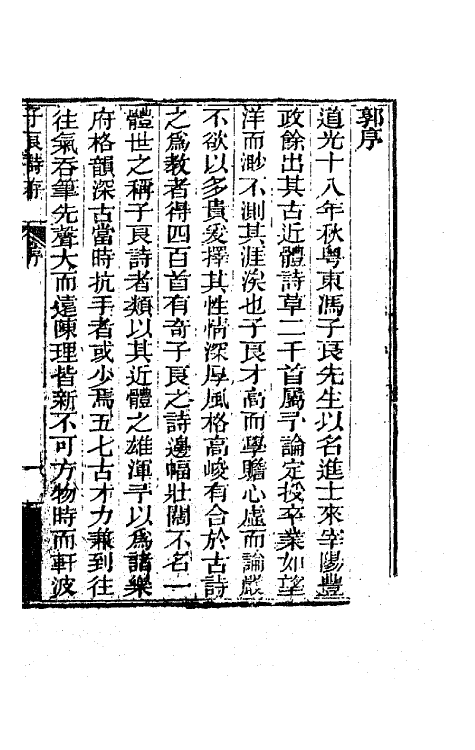 郭序
道光十八年秋粵東馮子良先生以名進士來宰陽豐
政餘出其古近體詩草二千首屬予論定授卒業如望
洋而渺不測其涯涘也子良才高而學贍心虛而論嚴
不欲以多貴爰擇其性情深厚風格高峻有合於古詩
之爲教者得四百首有奇子良之詩邊幅壯闊不名一
體世之稱子良詩者類以其近體之雄渾予以爲諸樂
府格韻深古當時抗手者或少焉五七古才力兼到往
往氣吞筆先聲大而遠陳理皆新不可方物時而軒波
子良詩存 序 一